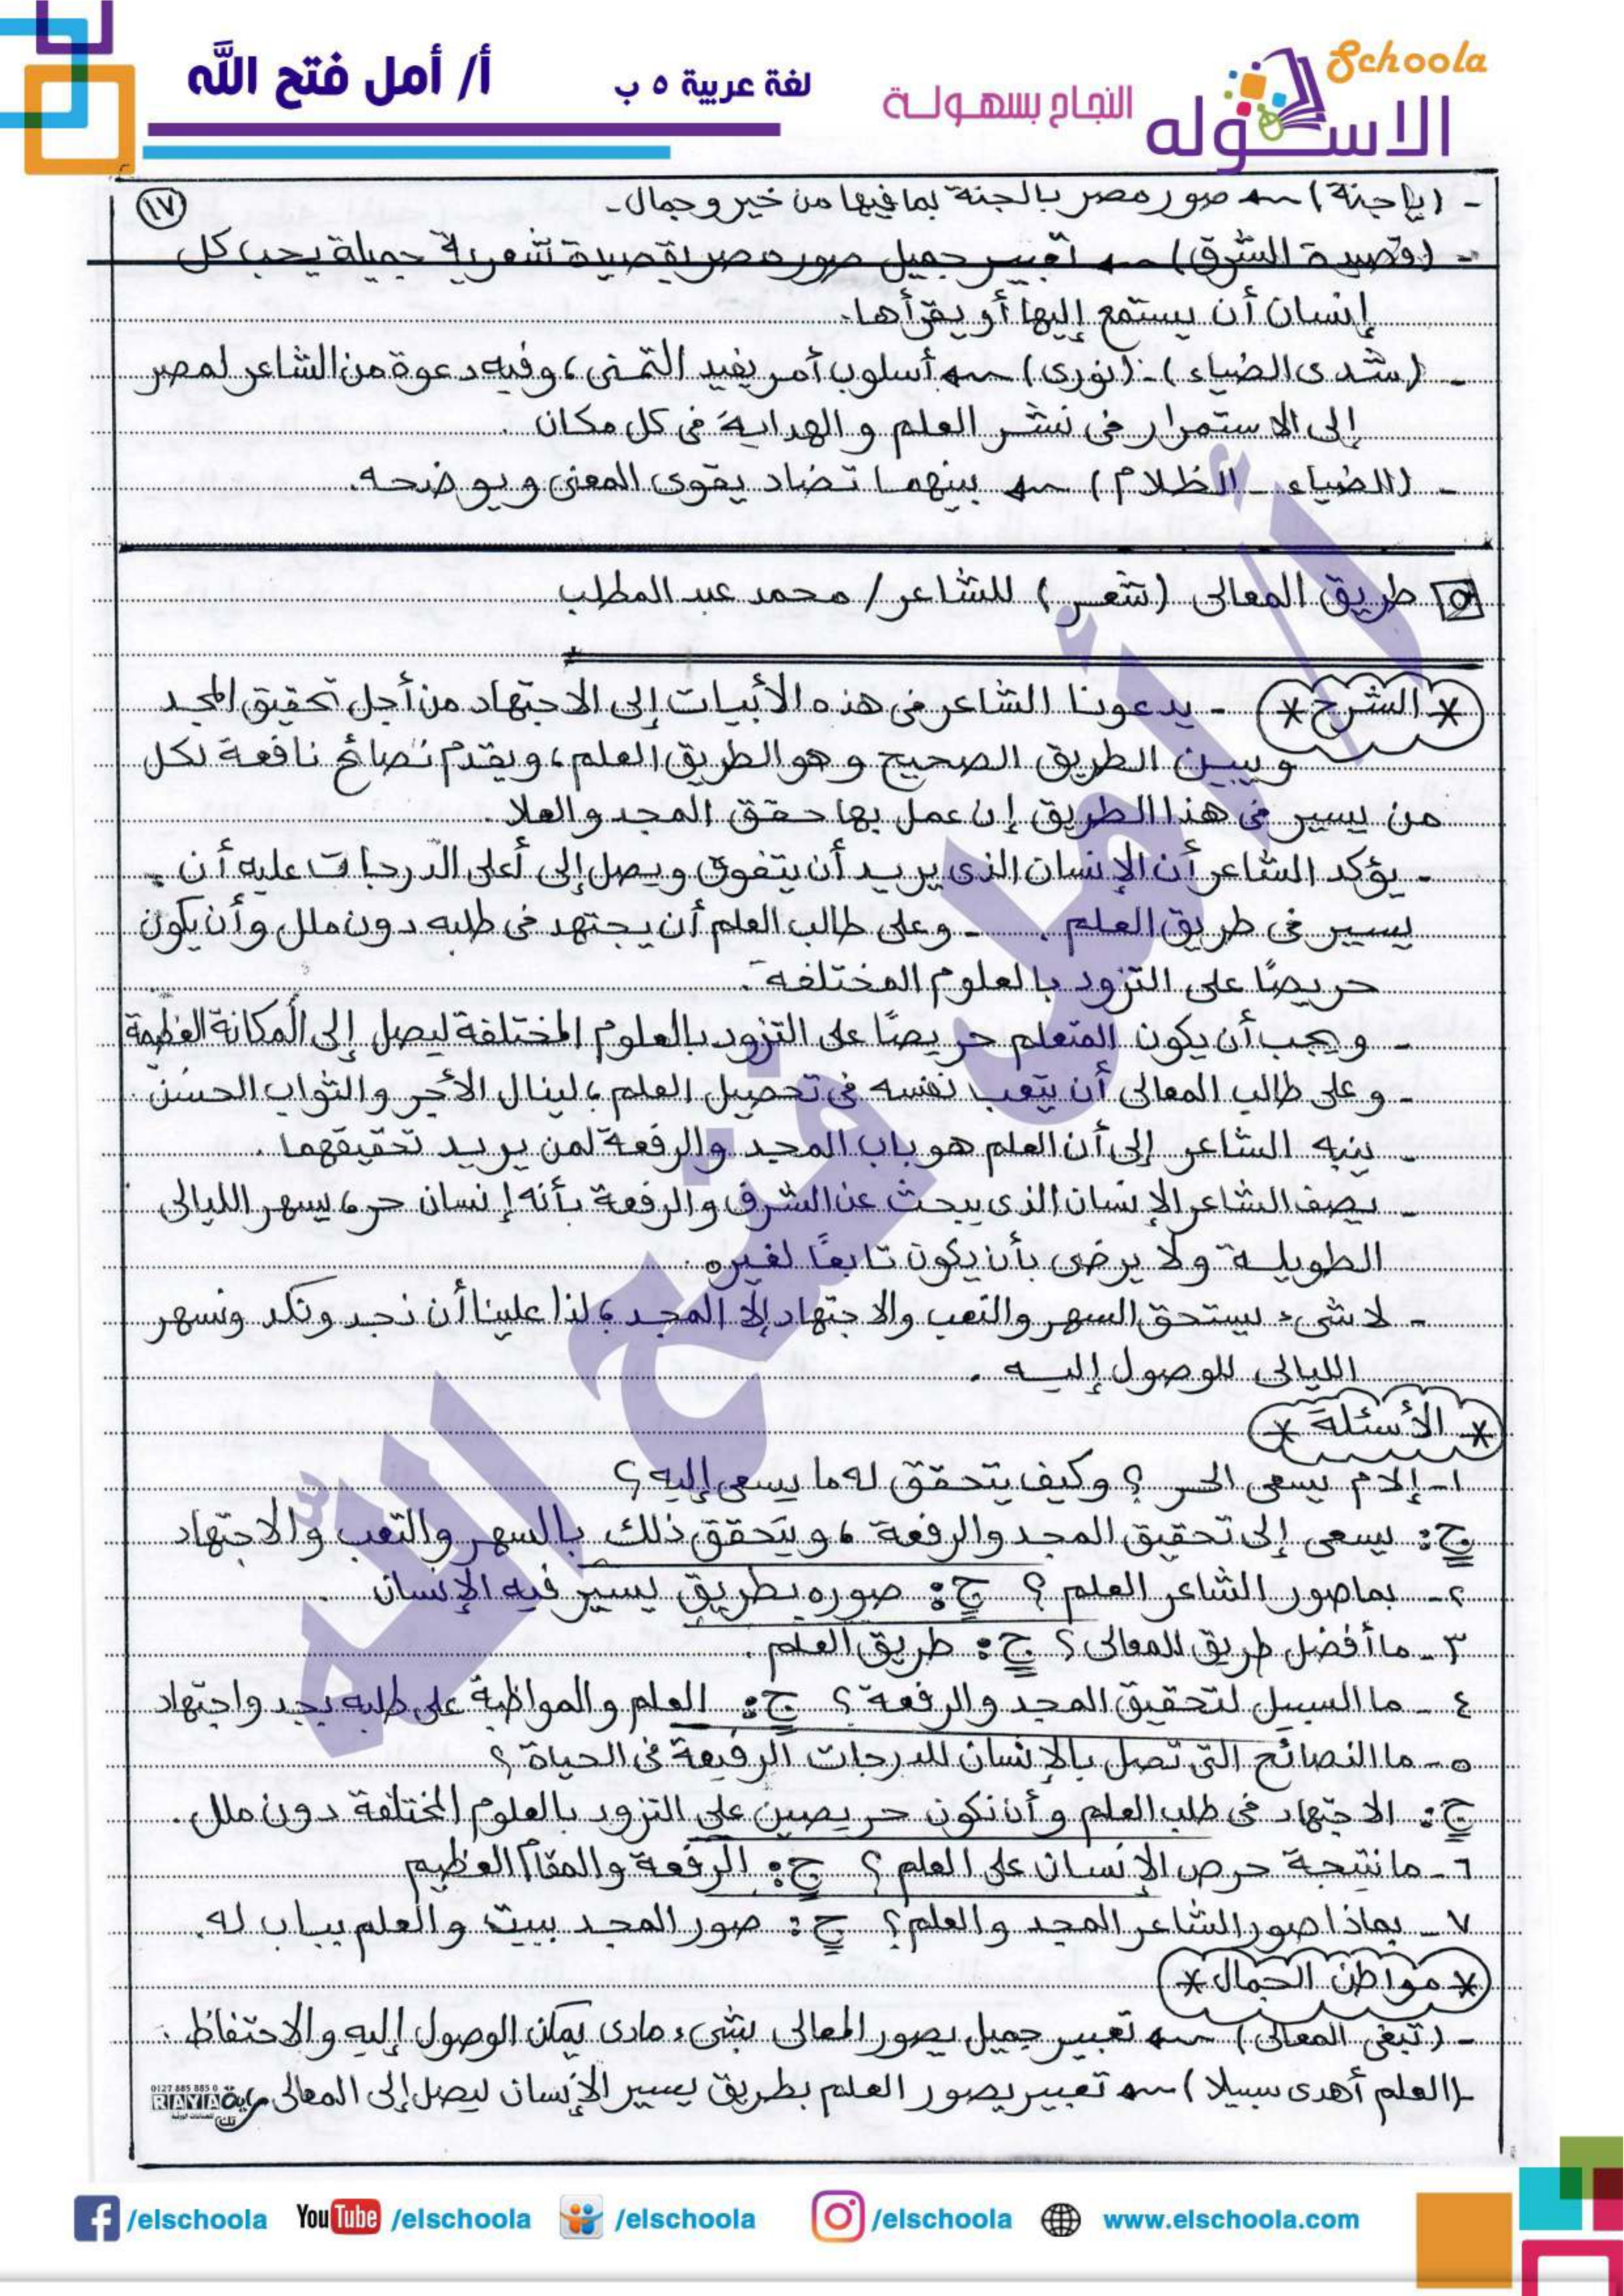 Schoola
الاسكوله
النجاح بسهولة
لغة عربية ٥ ب
أ/ أمل فتح الله
١٧
- (ياجنة) صور مصر بالجنة بما فيها من خير وجمال.
- (وقصيدة الشرق) تعبير جميل صور مصر بقصيدة شعرية جميلة يحب كل
إنسان أن يستمع إليها أو يقرأها.
- (شدى الضياء) - (نورى) أسلوب أمر يفيد التمنى، وفيه دعوة من الشاعر لمصر
إلى الاستمرار فى نشر العلم والهداية فى كل مكان.
- (الضياء - الظلام) بينهما تضاد يقوى المعنى ويوضحه.
٥ طريق المعالى (شعر) للشاعر / محمد عبد المطلب
* الشرح * - يدعونا الشاعر فى هذه الأبيات إلى الاجتهاد من أجل تحقيق المجد
ويبين الطريق الصحيح وهو الطريق العلم، ويقدم نصائح نافعة لكل
من يسير فى هذا الطريق إن عمل بها حقق المجد والعلا.
- يؤكد الشاعر أن الإنسان الذى يريد أن يتفوق ويصل إلى أعلى الدرجات عليه أن
يسير فى طريق العلم. - وعلى طالب العلم أن يجتهد فى طلبه دون ملل وأن يكون
حريصًا على التزود بالعلوم المختلفة.
- ويجب أن يكون المتعلم حريصًا على التزود بالعلوم المختلفة ليصل إلى المكانة العظيمة
- وعلى طالب المعالى أن يتعب نفسه فى تحصيل العلم، لينال الأجر والثواب الحسن.
- ينبه الشاعر إلى أن العلم هو باب المجد والرفعة لمن يريد تحقيقهما.
- يصف الشاعر الإنسان الذى يبحث عن الشرف والرفعة بأنه إنسان حر، يسهر الليالى
الطويلة ولا يرضى بأن يكون تابعًا لغيره.
- لا شىء يستحق السهر والتعب والاجتهاد إلا المجد، لذا علينا أن نجد ونكد ونسهر
الليالى للوصول إليه.
* الأسئلة *
١- إلام يسعى الحر؟ وكيف يتحقق له ما يسعى إليه؟
ج: يسعى إلى تحقيق المجد والرفعة، ويتحقق ذلك بالسهر والتعب والاجتهاد
٢- بما صور الشاعر العلم؟ ج: صوره بطريق يسير فيه الإنسان.
٣- ما أفضل طريق للمعالى؟ ج: طريق العلم.
٤- ما السبيل لتحقيق المجد والرفعة؟ ج: العلم والمواظبة على طلبه بجد واجتهاد
٥- ما النصائح التى تصل بالإنسان للدرجات الرفيعة فى الحياة؟
ج: الاجتهاد فى طلب العلم وأن نكون حريصين على التزود بالعلوم المختلفة دون ملل.
٦- ما نتيجة حرص الإنسان على العلم؟ ج: الرفعة والمقام العظيم
٧- بماذا صور الشاعر المجد والعلم؟ ج: صور المجد ببيت والعلم بباب له.
* مواطن الجمال *
- (تبغى المعالى) تعبير جميل يصور المعالى بشىء مادى يمكن الوصول إليه والاحتفاظ.
- (العلم أهدى سبيلا) تعبير يصور العلم بطريق يسير الإنسان ليصل إلى المعالى
0127 885 885 0
RAYIA
أ/ أمل فتح الله
/elschoola
YouTube /elschoola
/elschoola
/elschoola
www.elschoola.com